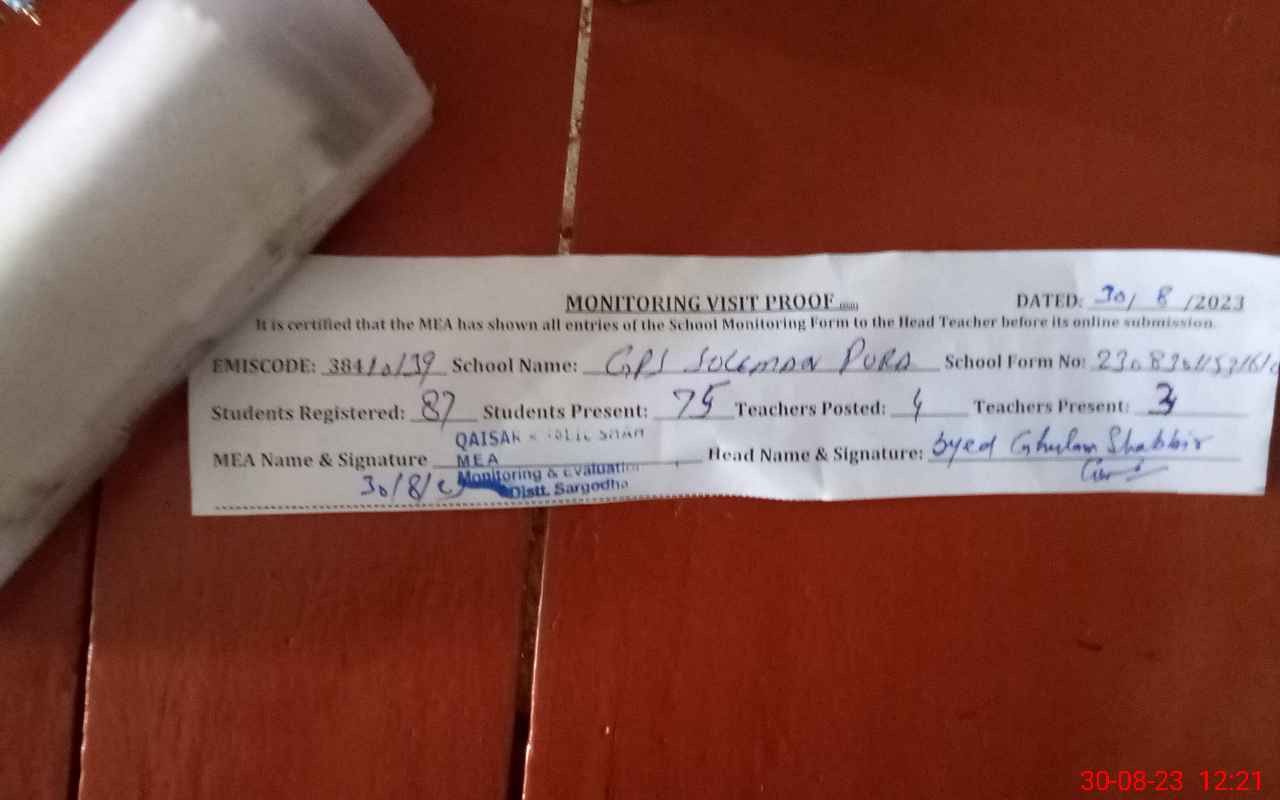 MONITORING VISIT PROOF
DATED: 30/ 8 /2023
It is certified that the MEA has shown all entries of the School Monitoring Form to the Head Teacher before its online submission.
EMISCODE: 384/0/39 School Name: GPS SULEMAN PURA School Form No:
Students Registered: 87 Students Present: 75 Teachers Posted: 4 Teachers Present: 3
QAISAR
MEA Name & Signature MEA Head Name & Signature: Syed Ghulam Shabbir
30/8/ Monitoring & Evaluation
Distt. Sargodha
30-08-23 12:21